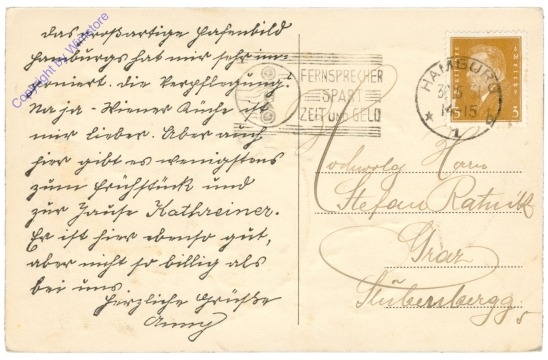 Das großartige Hafenbild
Hamburgs hat mir sehr im-
poniert. Die Verpflegung.
Na ja - Wiener Küche ist
mir lieber. Aber auch
hier gibt es wenigstens
zum Frühstück und
zur Jause Kathreiner.
Er ist hier ebenso gut,
aber nicht so billig als
bei uns.
Herzliche Grüße
Anny
Copyright by Wimstore
FERNSPRECHER
SPART
ZEIT UND GELD
HAMBURG
14-15
* 1
Hochwolg Herrn
Stefan
Graz
5